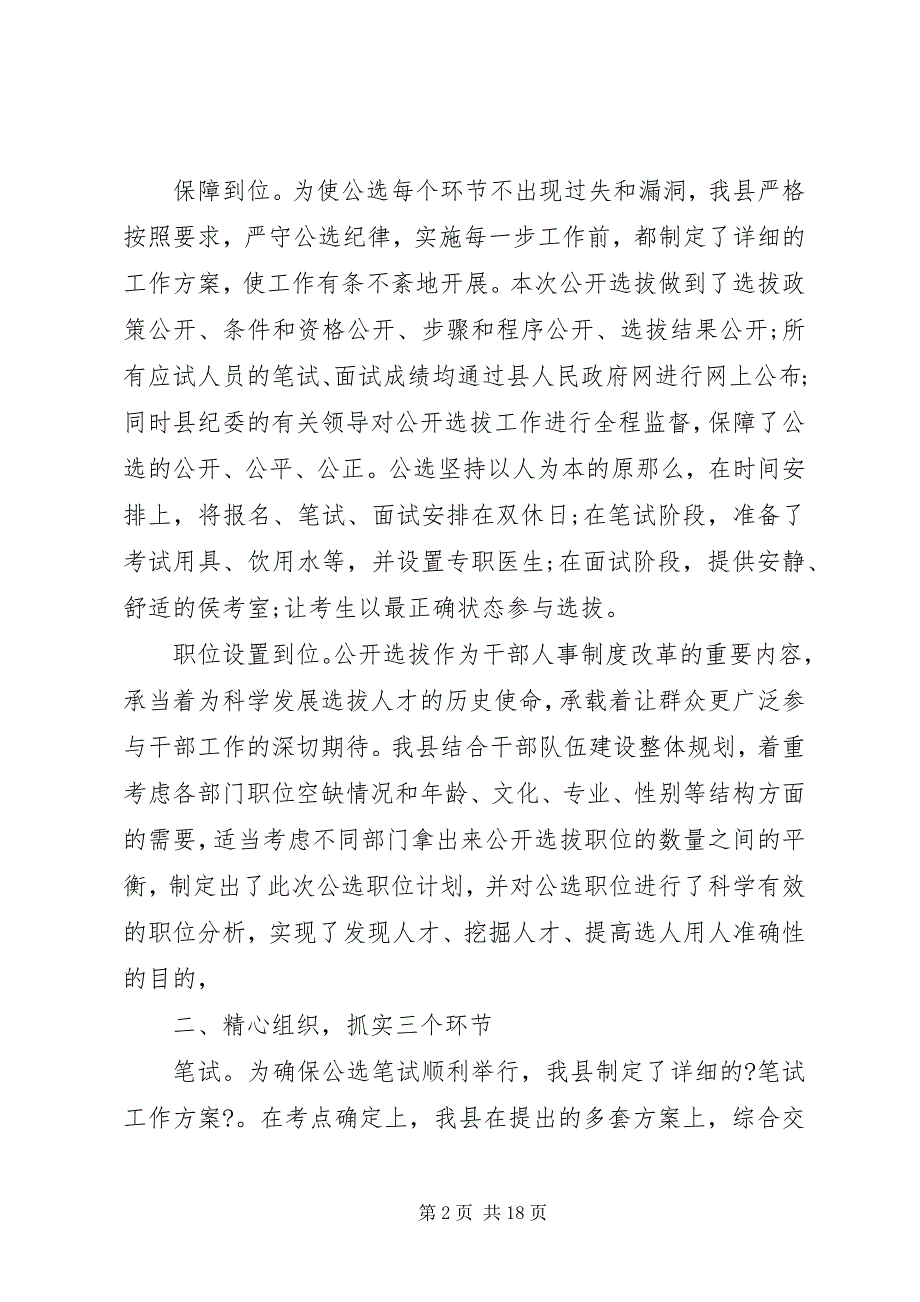 保障到位。为使公选每个环节不出现过失和漏洞，我县严格
按照要求，严守公选纪律，实施每一步工作前，都制定了详细的
工作方案，使工作有条不紊地开展。本次公开选拔做到了选拔政
策公开、条件和资格公开、步骤和程序公开、选拔结果公开;所
有应试人员的笔试、面试成绩均通过县人民政府网进行网上公布;
同时县纪委的有关领导对公开选拔工作进行全程监督，保障了公
选的公开、公平、公正。公选坚持以人为本的原那么，在时间安
排上，将报名、笔试、面试安排在双休日;在笔试阶段，准备了
考试用具、饮用水等，并设置专职医生;在面试阶段，提供安静、
舒适的侯考室;让考生以最正确状态参与选拔。
职位设置到位。公开选拔作为干部人事制度改革的重要内容，
承当着为科学发展选拔人才的历史使命，承载着让群众更广泛参
与干部工作的深切期待。我县结合干部队伍建设整体规划，着重
考虑各部门职位空缺情况和年龄、文化、专业、性别等结构方面
的需要，适当考虑不同部门拿出来公开选拔职位的数量之间的平
衡，制定出了此次公选职位计划，并对公选职位进行了科学有效
的职位分析，实现了发现人才、挖掘人才、提高选人用人准确性
的目的，
二、精心组织，抓实三个环节
笔试。为确保公选笔试顺利举行，我县制定了详细的?笔试
工作方案?。在考点确定上，我县在提出的多套方案上，综合交
第 2 页 共 18 页